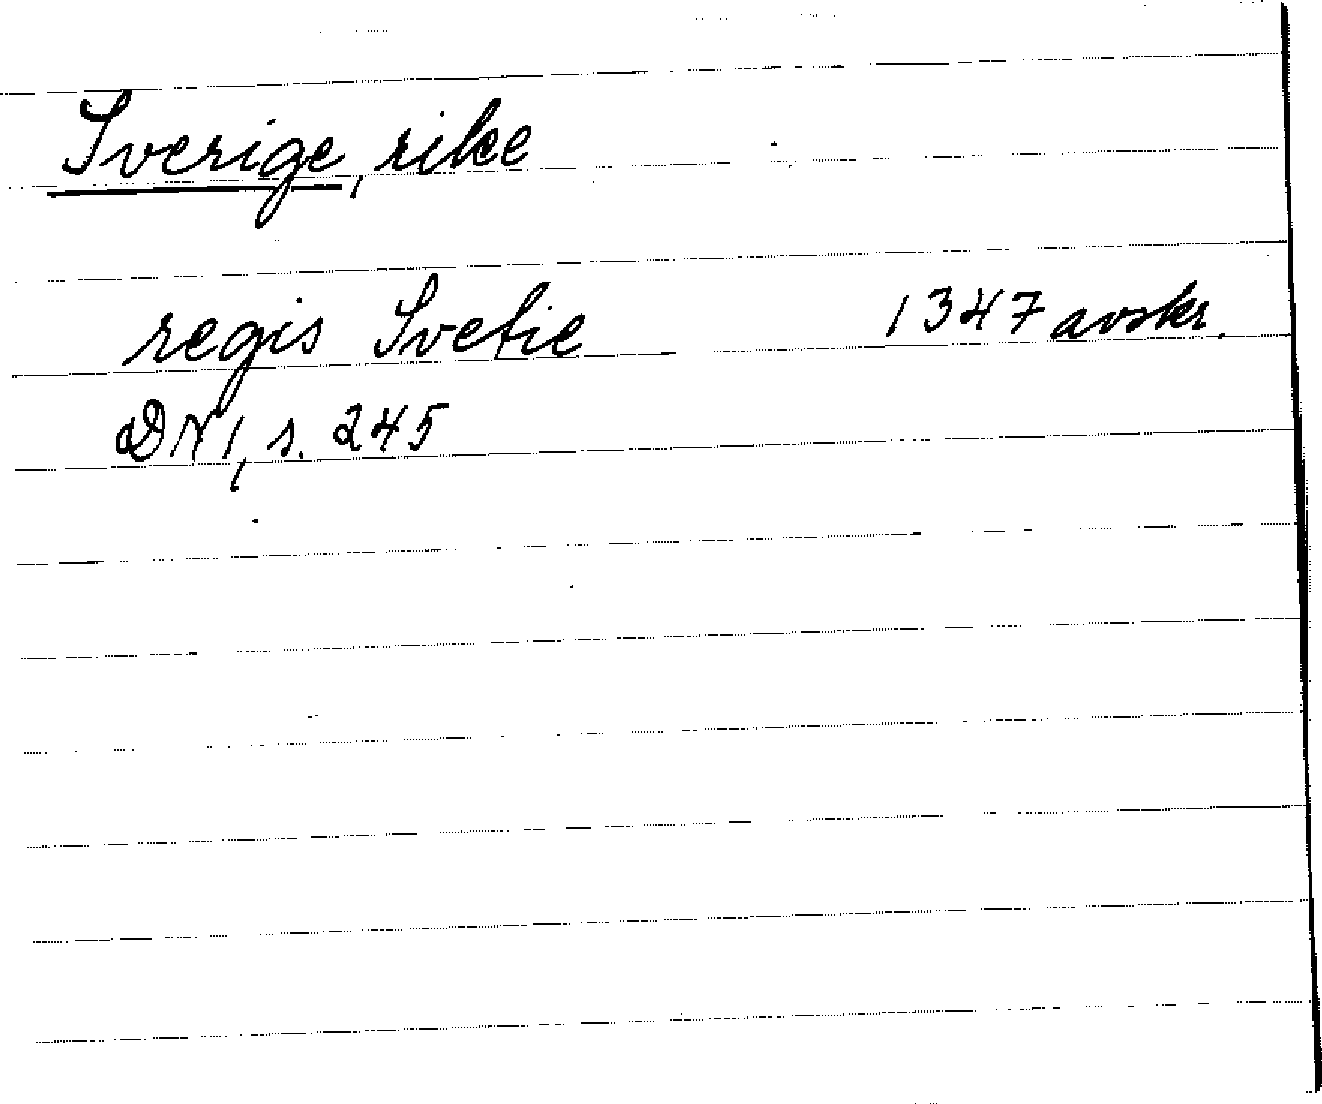 Sverige, rike
regis Svetie 1347 avskr.
DN 1, s. 245